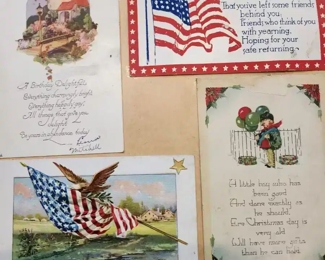 A Birthday Delightful,
Everything thoroughly bright,
Everything happily gay!
All things that give you
delight
Be yours in abundance today
That you've left some friends
behind you.
Friends who think of you
with yearning,
Hoping for your
safe returning.
A little boy who has
been good
And done exactly as
he should,
Ere Christmas day is
very old
Will have more gifts
than he can hold